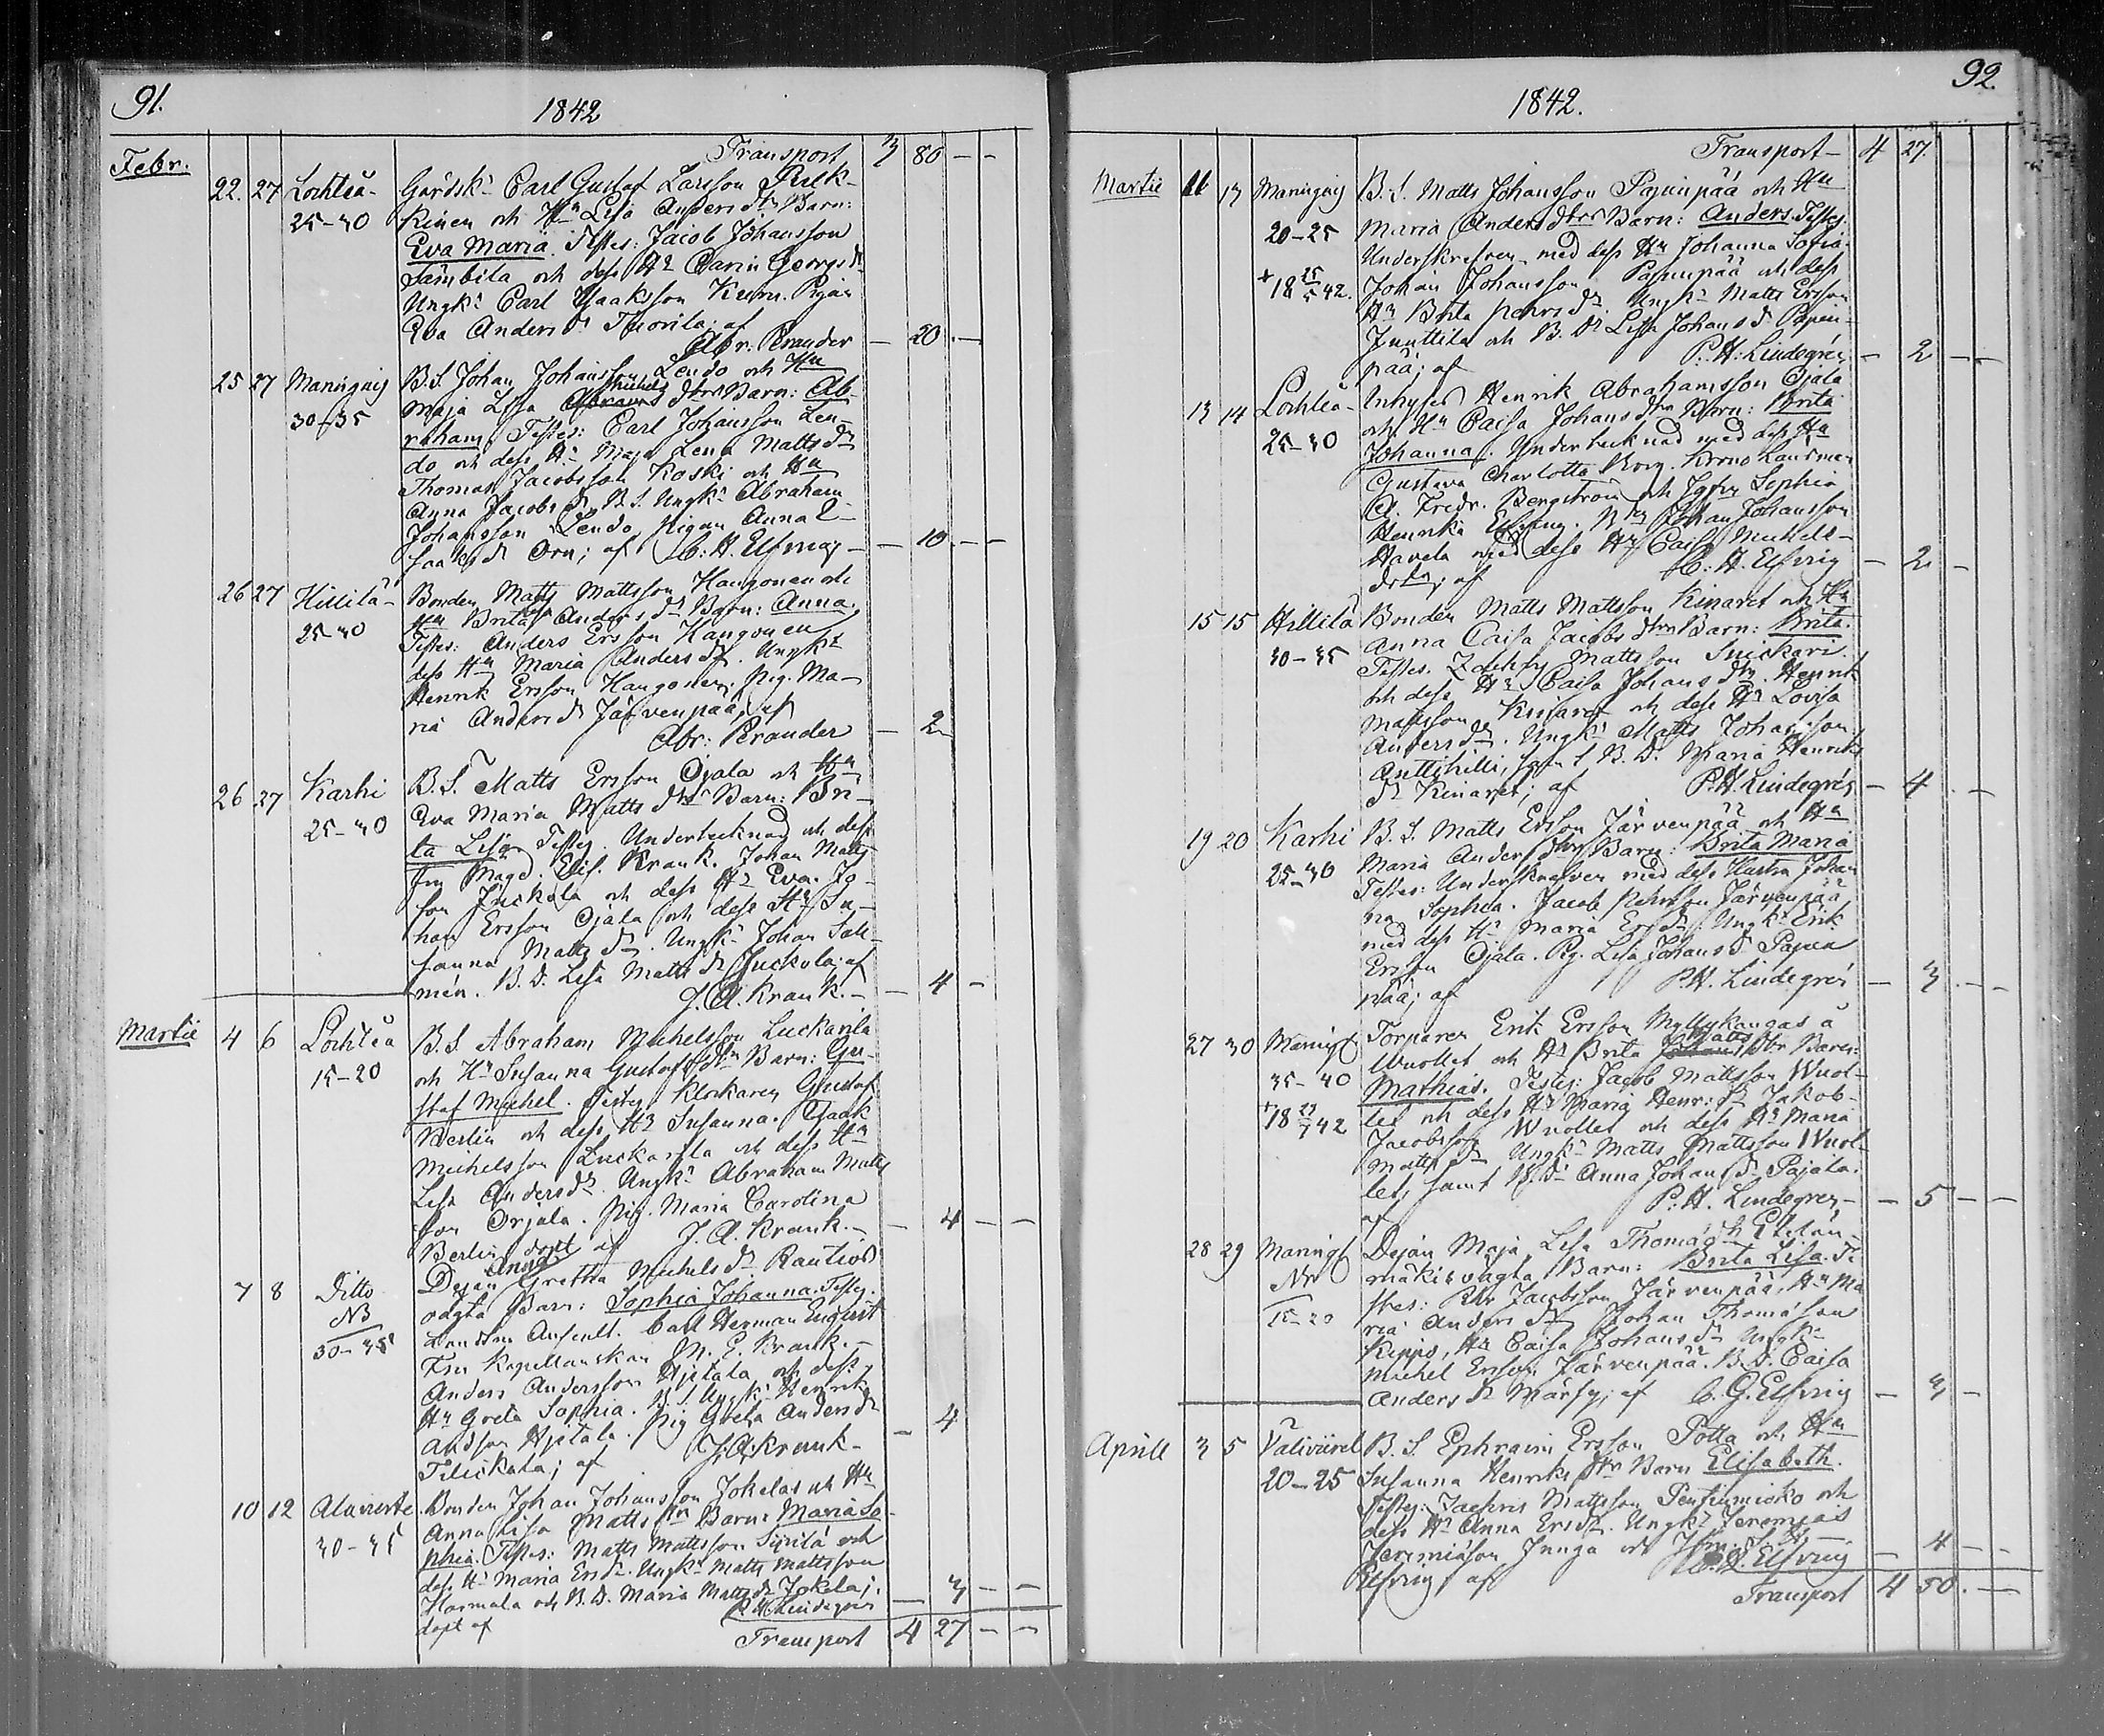 91.
1842
Transport 3 80 - -
Febr. 22. 27 Lochteå Gårdsk. Carl Gustaf Larsson Pulk-
25-30 kinen och Hu Lisa Anders dr Barn:
Eva Maria. Testes: Jacob Johansson
och dess Hu Carin Georgs dr
Ungk: Carl Isaksson Pigan
Eva Anders dr af
Abr. Perander - 20 -
25 27 Maringaig B.S. Johan Johansson Lendo och Hu
30-35 Maja Lisa Michels dtrs Barn: Ab-
raham. Testes: Carl Johansson Len-
do och dess Hu Maja Lena Matts dr
Thomas Jacobsson Koski och Hu
Anna Jacobs dr B.S. Ungk: Abraham
Johansson Lendo, Pigan Anna I-
saaks dr Orn; af C. H. Elfving - 10 - -
26 27 Hillilä Bonden Matts Mattsson Kangonen och
25-30 Hu Brita Lisa Anders dr Barn: Anna.
Testes: Anders Ersson Kangonen
dess Hu Maria Anders dr. Ungk:
Henrik Ersson Kangonen, Pig. Ma-
ria Anders dr Järvenpää, af
Abr: Perander - 2
26 27 Karhi B.S. Matts Ersson Ojala och Hu
25-30 Eva Maria Matts dtrs Barn: Bri-
ta Lisa. Testes. Undertecknad och dess
fru Magd. Elis. Krank. Johan Matts
son Juckola och dess Hu Eva. Jo-
han Ersson Ojala och dess Hu Su-
sanna Matts dr. Ungk: Johan Sal-
mén. B.D. Lisa Matts dr Juckola; af
J. A. Krank. - 4 -
Martii 4 6 Lochteå B.S. Abraham Michelsson Luckarila
15-20 och Hu Susanna Gustafs dtr Barn: Gu-
staf Michel. Testes Klockaren Gustaf
Berlin och dess Hu Susanna. Isaak
Michelsson Luckarila och dess Hu
Lisa Anders dr. Ungk: Abraham Matts
son Orjala. Pig. Maria Carolina
Berlin, döpt af J. A. Krank. - 4 - -
7 8 Ditto Dejan Anna Gretha Michels dr Rautios
NB oägta Barn: Sophia Johanna. Testes.
30-35 Landtm Auscult. Carl Herman Engqvist
Fru Kapellanskan M. E. Krank.
Anders Andersson Hjetala och dess
Hu Greta Sophia. B.S. Ungk: Henrik
Andsson Hjetala. Pig Greta Anders dr
af J. A. Krank - 4
10 12 Alaviirte Bonden Johan Johansson Jokelas och Hu
30-35 Anna Lisa Matts dtr Barn: Maria So-
phia. Testes: Matts Mattsson Siirilä och
dess Hu Maria Ers dr. Ungk: Matts Mattsson
Harmala och B.D. Maria Matts dr Jokela;
döpt af P. H. Lindegrén - 3 - -
Transport 4 27 - -
92.
1842.
Transport 4 27.
Martii 11 13 Maringaig B.S. Matts Johansson Pajunpää och Hu
20-25 Maria Anders dtrs Barn: Anders. Testes.
Underskrefven med dess Hu Johanna Sofia
+18 25/5 42. Johan Johansson Pajunpää och dess
Hu Brita Pehrs dr. Ungk: Matts Ersson
Junttila och B. Dr. Lisa Johans dr Pajun-
pää; af P. H. Lindegrén - 2 - -
13 14 Lochteå Inhyses Henrik Abrahamsson Ojala
25-30 och Hu Caisa Johans dtr Barn: Brita
Johanna. Undertecknad med dess Hu
Gustava Charlotta Borg. Krono Länsman
A. Fredr. Bergström och Jgfru Sophia
Henrika Elfving. Johan Johansson
Havela med dess Hu Caisa Michels-
dotter; af C. H. Elfving - 2 -
15 15 Hillilä Bonden Matts Mattsson Kinaret och Hu
30-35 Anna Caisa Jacobs dtrs Barn: Brita.
Testes. Zachris Mattsson Snickari
och dess Hu Caisa Johans dtr. Henrik
Mattsson Kinaret och dess Hu Lovisa
Anders dr. Ungk: Matts Johansson
Anttihilli, samt B.D. Maria Henriks
dr Kinaret; af P. H. Lindegrén - 4 - -
19 20 Karhi B.S. Matts Ersson Järvenpää och Hu
25-30 Maria Anders dtrs Barn: Brita Maria
Testes: Underskrefven med dess Hustru Johan
na Sophia. Jacob Pehrsson Järvenpää
med dess Hu Maria Ers dr. Ungk: Erik
Ersson Ojala. Pg. Lisa Johans dr Pajun
pää; af P. H. Lindegrén - 3 - -
27 30 Maringl Torparen Erik Ersson Myllykangas å
Wuollet och Hu Brita Matts dtr Barn:
35-40 Mathias. Testes: Jacob Mattsson Wuol-
+18 42 let och dess Hu Maria Henr: dr. Jakob
Jacobsson Wuollet och dess Hu Maria
Matts dr Ungk: Matts Mattsson Wuol-
let, samt B.D. Anna Johans dr Pajala.
af P. H. Lindegrén - 5 - -
28 29 Maringl Dejan Maja Lisa Thomas dr
NB oägta Barn: Brita Lisa. Te
15-20 stes: Pehr Jacobsson Järvenpää, Hu Ma
ria Anders dr Johan Thomasson
Kippo, Hu Caisa Johans dr Ungk:
Michel Ersson Järvenpää. B.D. Caisa
Anders dr Märsy; af C. G. Elfving - 3 -
Aprill 3 5 Väliviirre B.S. Ephraim Ersson Potta och Hu
20-25 Susanna Henriks dtr Barn Elisabeth.
Testes: Zachris Mattsson Penttumisko och
dess Hu Anna Ers dr. Ungk: Jeremias
Jeremiasson Junga och
Elfving af C. H. Elfving - 4 - -
Transport 4 50. -